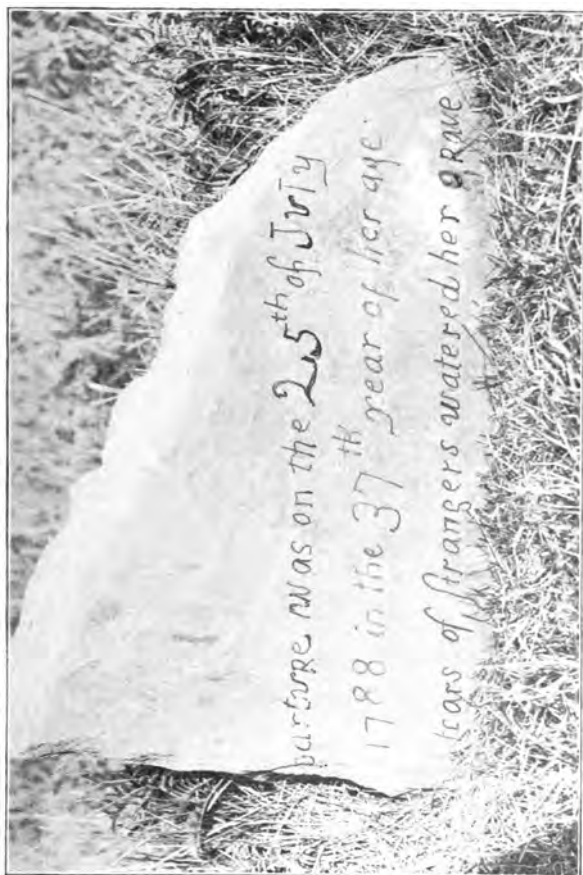 parture was on the 25th of July
1788 in the 37th year of her age.
tears of strangers watered her grave